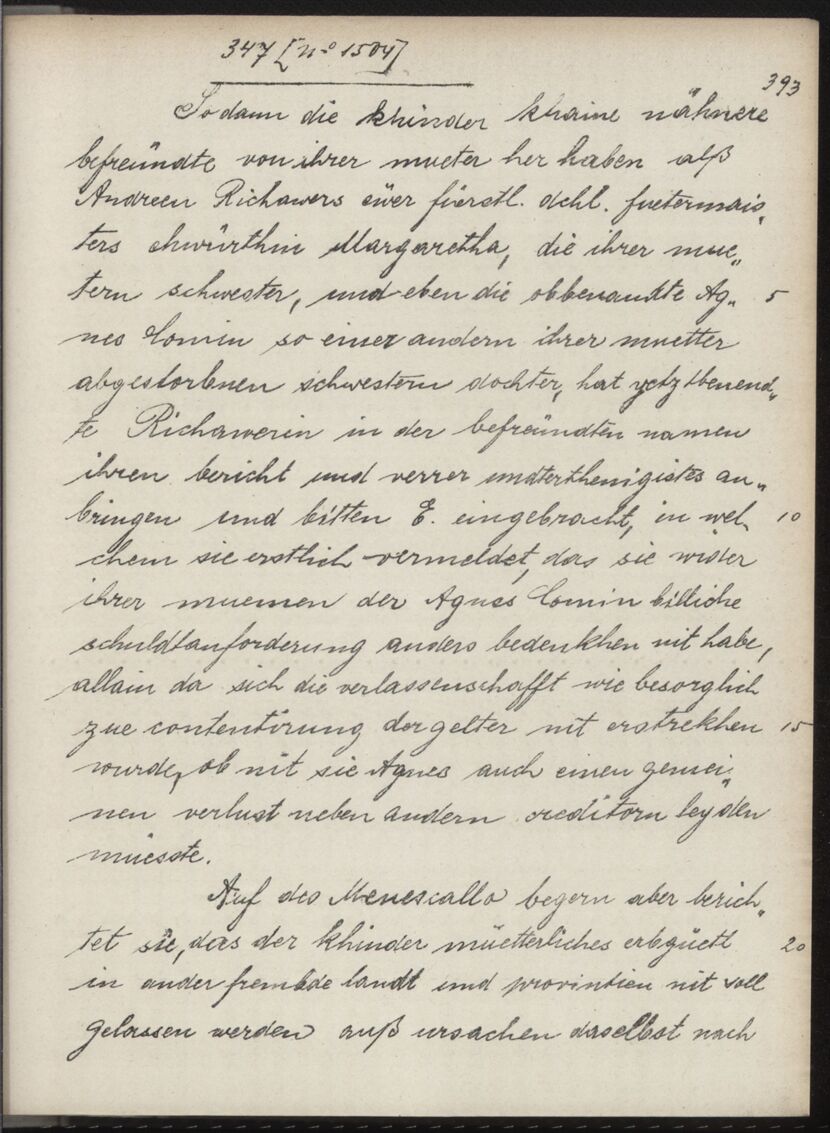 347 [No 1504]
393
Sodann die khinder khaine nähnere
befreündte von ihrer mueter her haben alß
Andreen Richawers eüer fürstl. dchl. fuetermais„
ters ehwürthin Margaretha, die ihrer mue„
tern schwester, und eben die obbenandte Ag„ 5
nes Comin so einer andern ihrer muetter
abgestorbenen schwestern dochter, hat yetztbenend„
te Richawerin in der befreündten namen
ihren bericht und verrer underthenigistes an„
bringen und bitten E. eingebracht, in wel„ 10
chem sie erstlich vermeldet, das sie wider
ihrer muemen der Agnes Comin billiche
schuldtanforderung anders bedenkhen nit habe,
allain da sich die verlassenschafft wie besorglich
zue contentirung der gelter nit erstrekhen 15
wurde, ob nit sie Agnes auch einen gemei„
nen verlust neben andern creditorn leyden
müesste.
Auf des Menescallo begern aber berich„
tet sie, das der khinder müetterliches erbgüetl 20
in ander frembde landt und provintien nit soll
gelassen werden auß ursachen daselbst nach